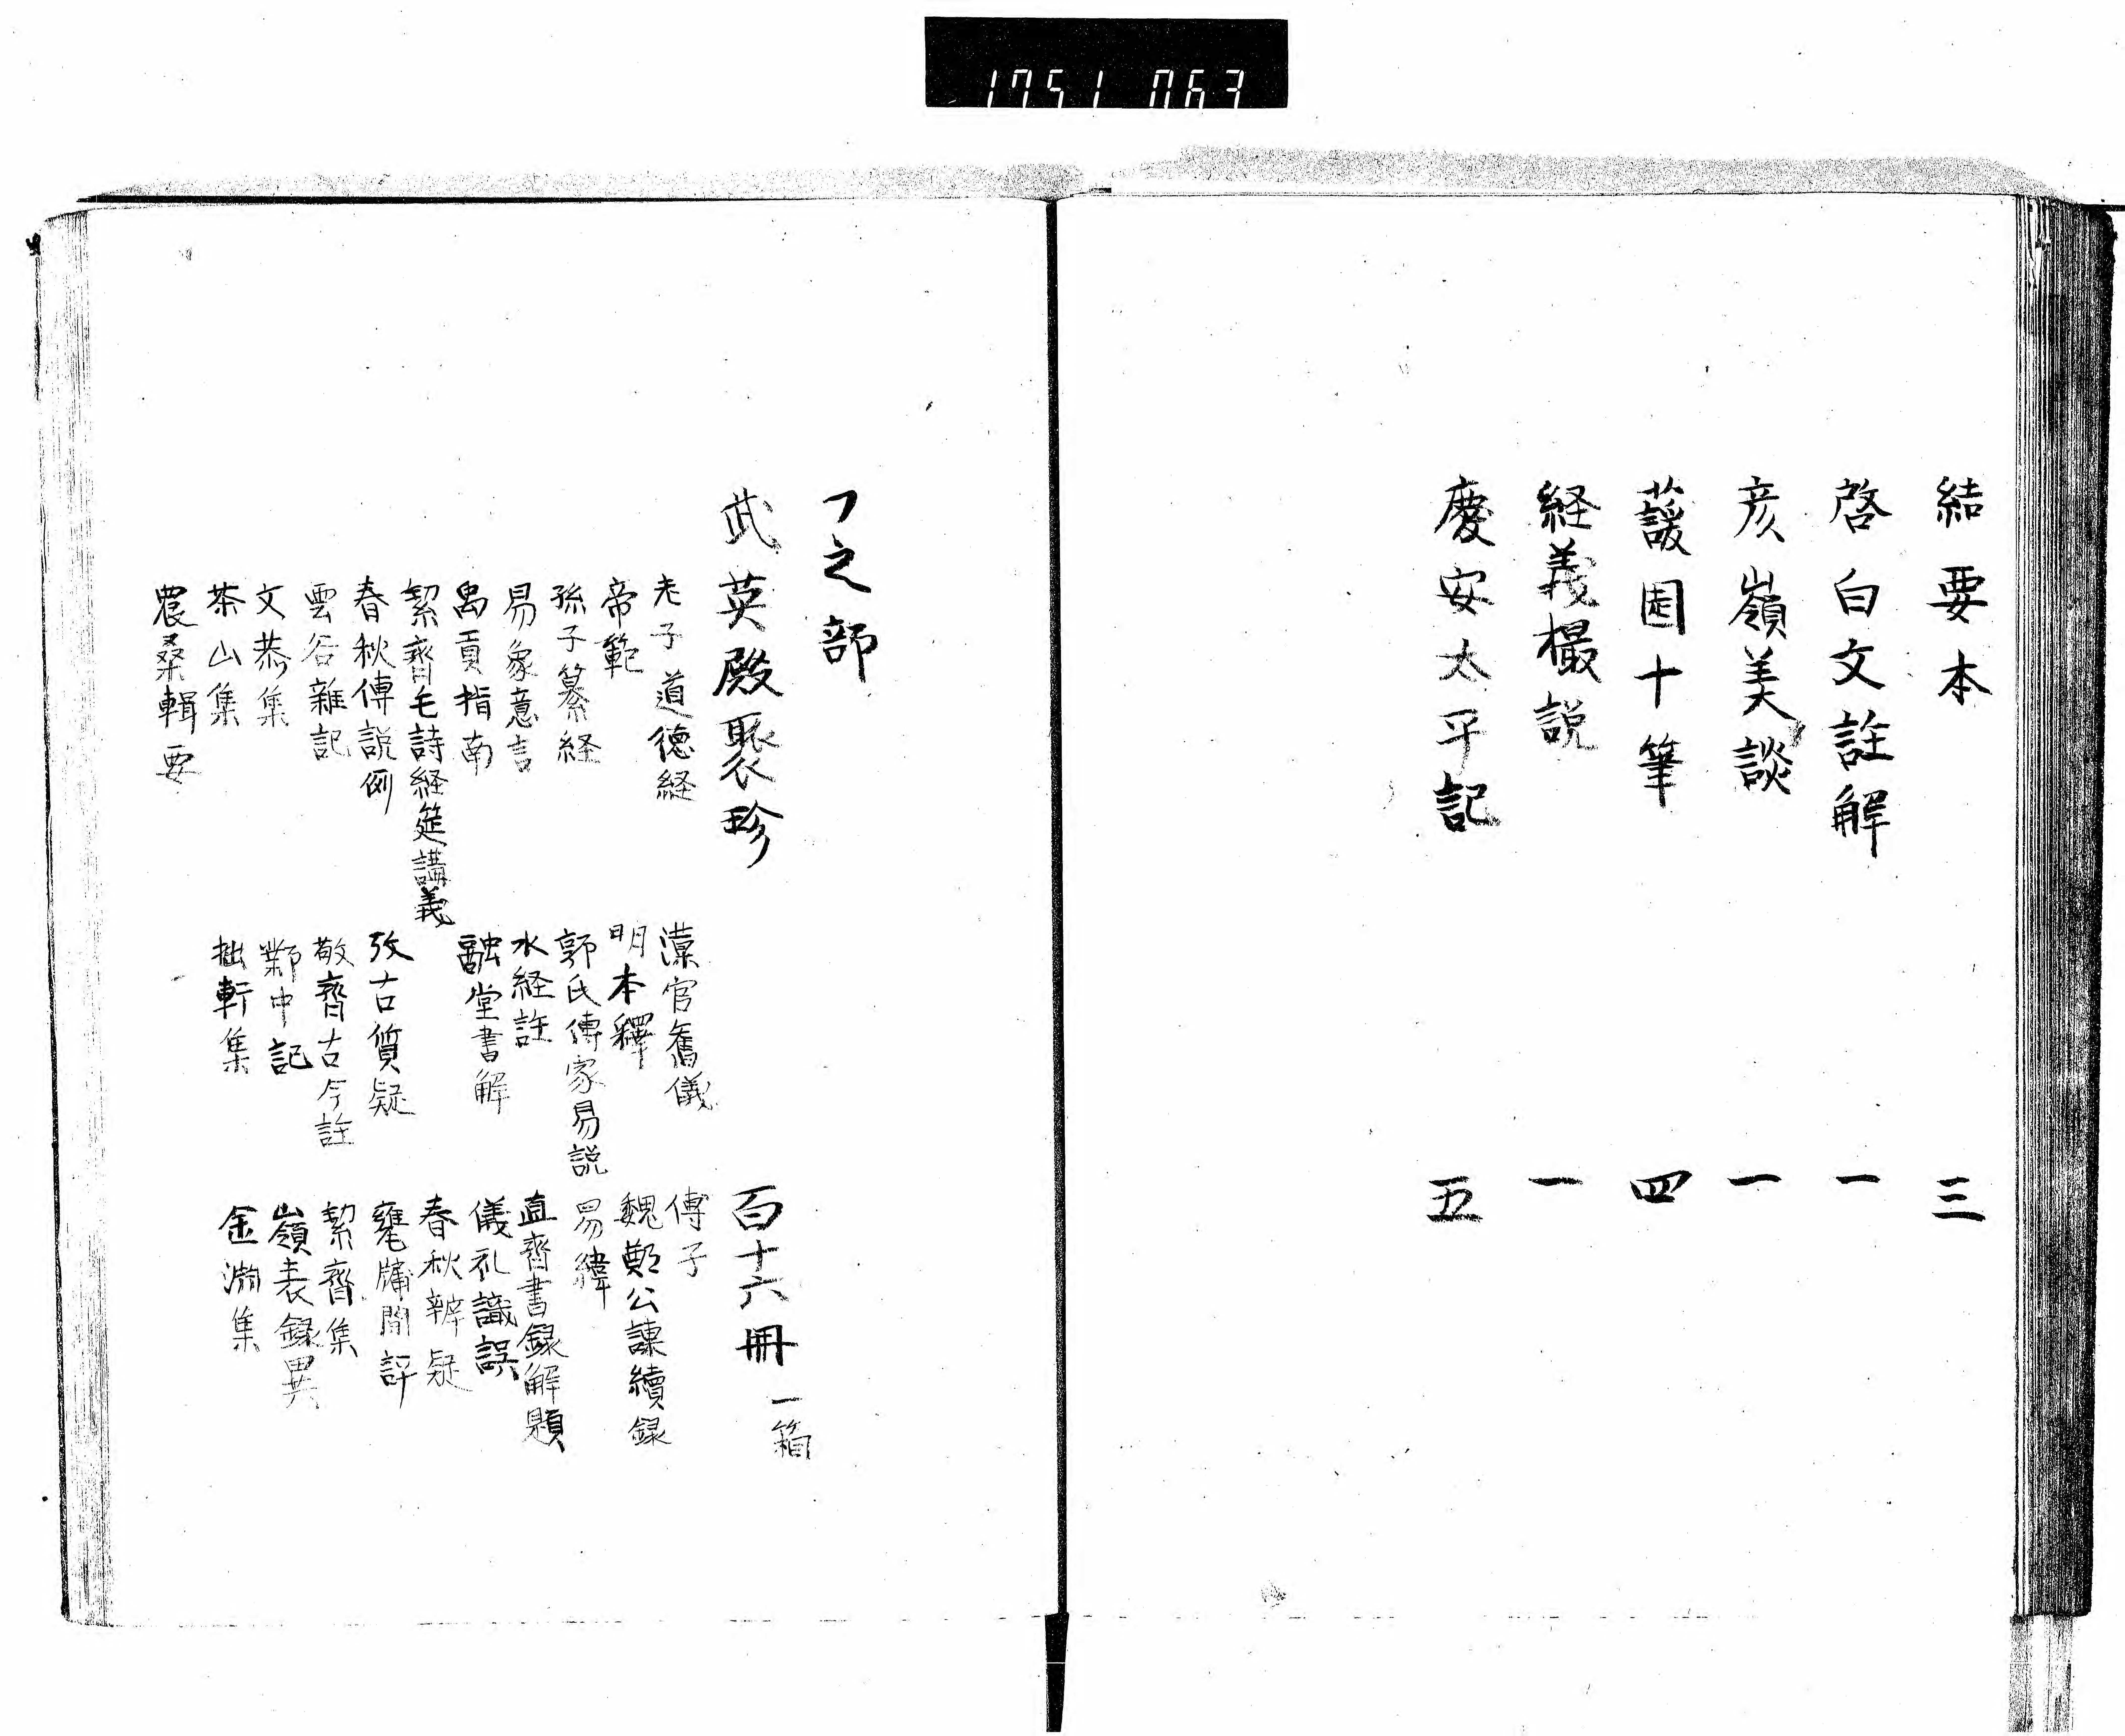 1751 063
結要本 三
啓白文註解 一
彦嶺美談 一
蘐園十筆 四
経義撮説 一
慶安太平記 五
フ之部
武英殿聚珍 百十六冊 一箱
老子道徳経 漢官舊儀 傅子
帝範 明本釋 魏鄭公諌續録
孫子纂経 郭氏傳家易説 易緯
易象意言 水経註 直齊書録解題
禹貢指南 融堂書解 儀礼識誤
絜齊毛詩経筵講義 春秋辨疑
春秋傳説例 攷古質疑 甕牖閒評
雲谷雜記 敬齊古今註 絜齊集
文恭集 鄴中記 嶺表録異
茶山集 拙軒集 金淵集
農桑輯要